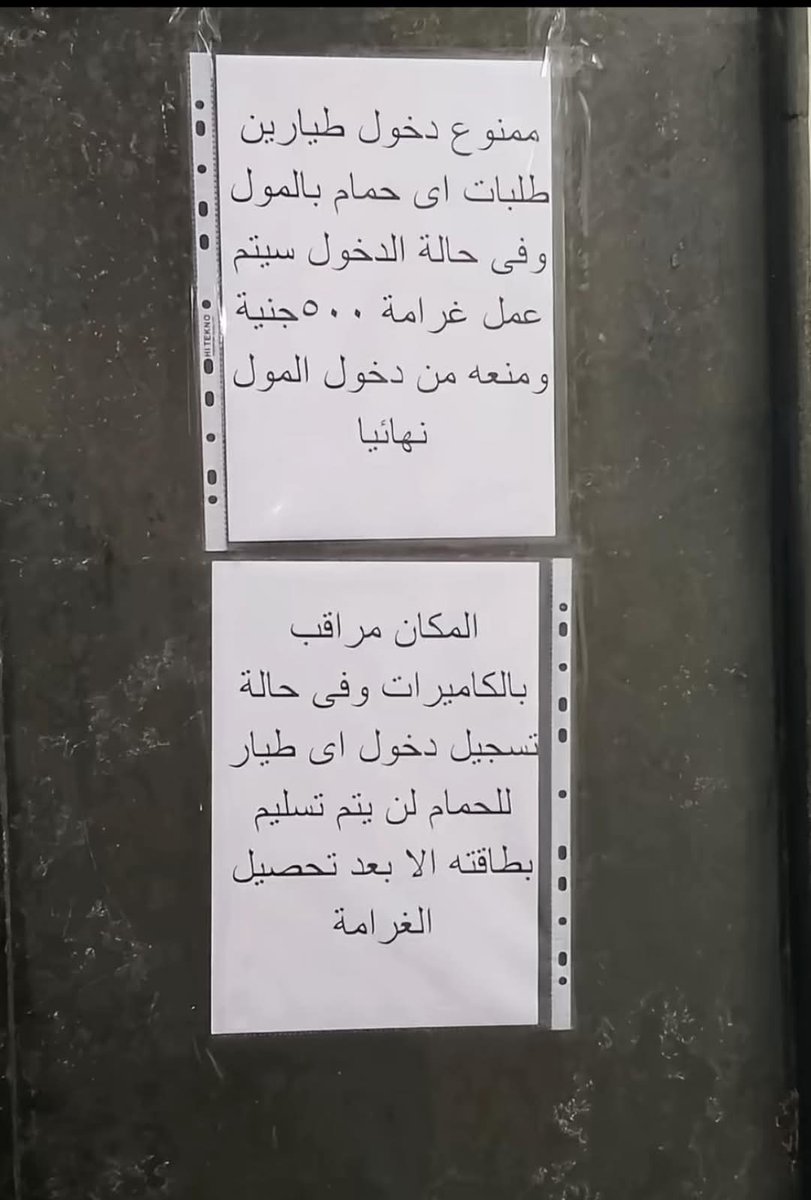 ممنوع دخول طيارين
طلبات اى حمام بالمول
وفى حالة الدخول سيتم
عمل غرامة ٥٠٠جنية
ومنعه من دخول المول
نهائيا
HITEKNO
المكان مراقب
بالكاميرات وفى حالة
تسجيل دخول اى طيار
للحمام لن يتم تسليم
بطاقته الا بعد تحصيل
الغرامة